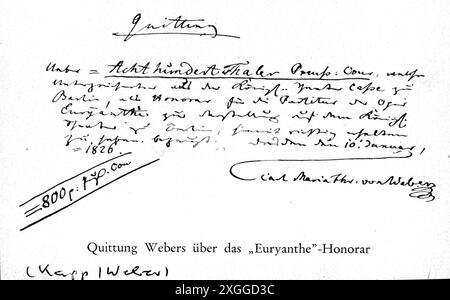 Quittung
Ueber = Acht hundert Thaler Preuß: Cour, welche
Unterzeichneter aus der Königl. Theater Casse zu
Berlin, als Honorar für die Partitur der Oper
Euryanthe zur Darstellung auf dem Königl.
Theater zu Berlin, hiermit richtig erhalten
zu haben bezeugt. Dresden den 10. Januar,
1826.
Carl Maria von Weber
= 800 Cour
Quittung Webers über das „Euryanthe"-Honorar
(Kapp / Weber)
alamy
Image ID: 2XGGD3C
www.alamy.com